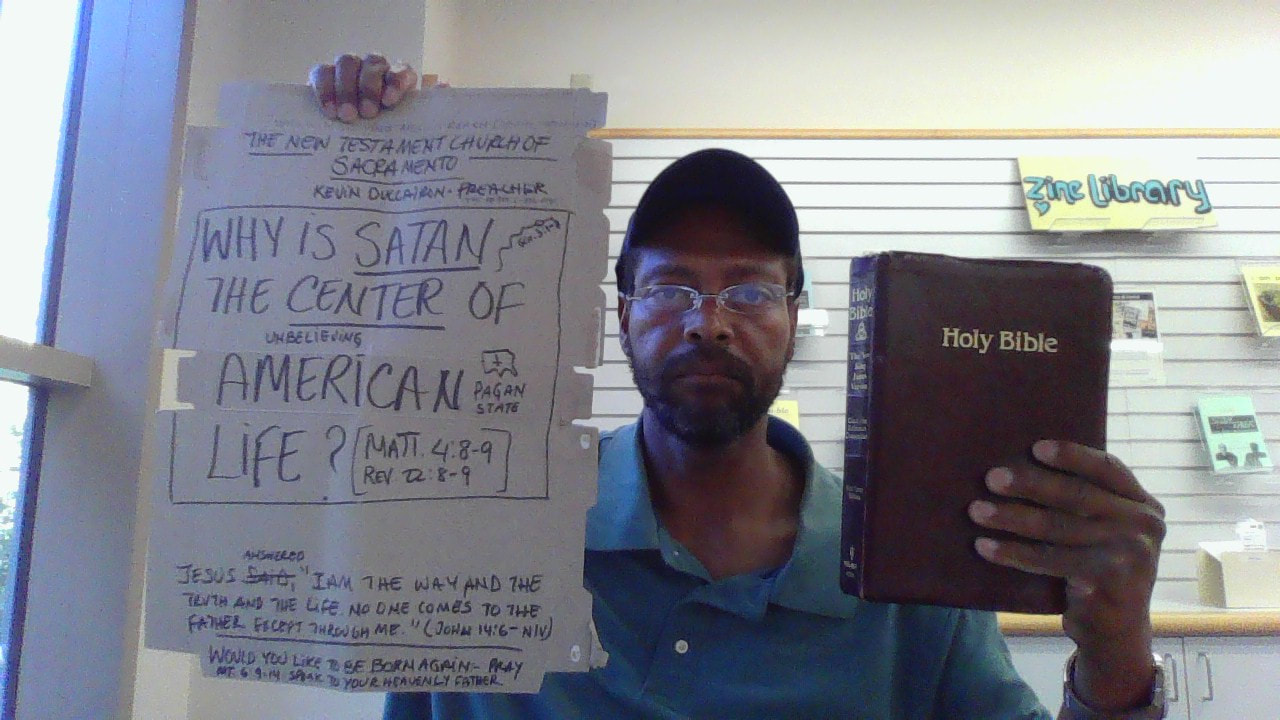 THE NEW TESTAMENT CHURCH OF
SACRAMENTO
KEVIN - PREACHER
WHY IS SATAN
THE CENTER OF
UNBELIEVING
AMERICAN
PAGAN
STATE
LIFE?
[MATT. 4:8-9
REV. 22:8-9]
ANSWERED
JESUS SAID, "I AM THE WAY AND THE
TRUTH AND THE LIFE. NO ONE COMES TO THE
FATHER EXCEPT THROUGH ME." (JOHN 14:6-NIV)
WOULD YOU LIKE TO BE BORN AGAIN- PRAY
MT. 6:9-14 SPEAK TO YOUR HEAVENLY FATHER
Holy Bible
Holy
Bible
Zine Library